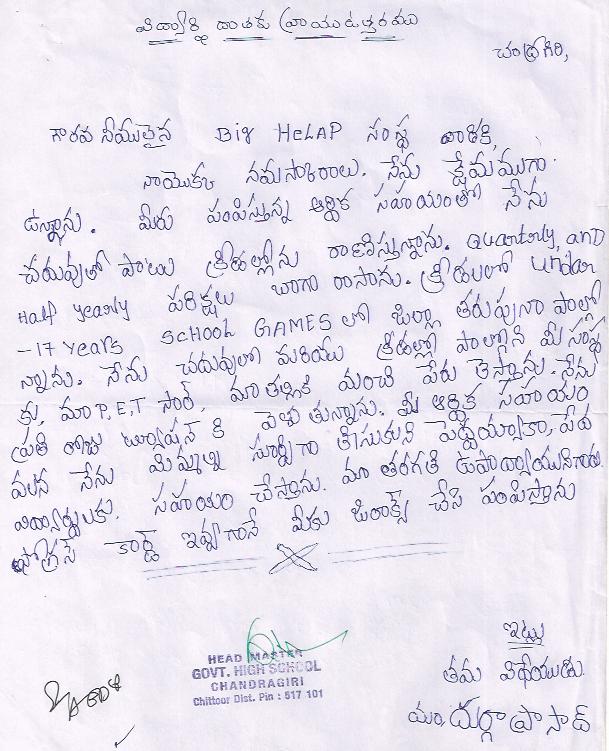 విద్యార్థి దాతకు ప్రాయు ఉత్తరము
చంద్రగిరి,
గౌరవ నీయులైన Big HeLAP సంస్థ వారికి,
నాయొక్క నమస్కారాలు. నేను క్షేమముగా
ఉన్నాను. మీరు పంపిస్తున్న ఆర్థిక సహాయంతో నేను
చదువుతో పాటు క్రీడల్లోను రాణిస్తున్నాను. Quarterly, and
Half yearly పరిక్షలు బాగా రాసాను. క్రీడలలో Under
-17 years SCHOOL GAMES లో జిల్లా తరుపునా పాల్గో
న్నాను. నేను చదువులో మరియు క్రీడల్లో పాల్గొని మీ సంస్థ
కు, మా P.E.T సార్, మా తల్లికి మంచి పేరు తెస్తాను. నేను
ప్రతి రోజు ట్యూషన్ కి వెళుతున్నాను. మీ ఆర్థిక సహాయం
వలన నేను మిమ్మల్ని స్పూర్తిగా తీసుకుని పెద్దయ్యాకా, పేద
విద్యార్థులకు సహాయం చేస్తాను. మా తరగతి ఉపాధ్యాయునిగారు
ప్రోగ్రెస్ కార్డ్ ఇవ్వగానే మీకు జిరాక్స్ చేసి పంపిస్తాను
ఇట్లు
తమ విధేయుడు
యం. దుర్గా ప్రసాద్
HEAD MASTER
GOVT. HIGH SCHOOL
CHANDRAGIRI
Chittoor Dist. Pin : 517 101